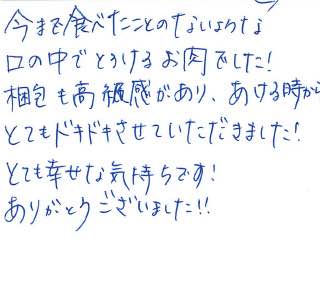 今まで食べたことのないような
口の中でとろけるお肉でした!
梱包も高級感があり、あける時から
とてもドキドキさせていただきました!
とても幸せな気持ちです!
ありがとうございました!!